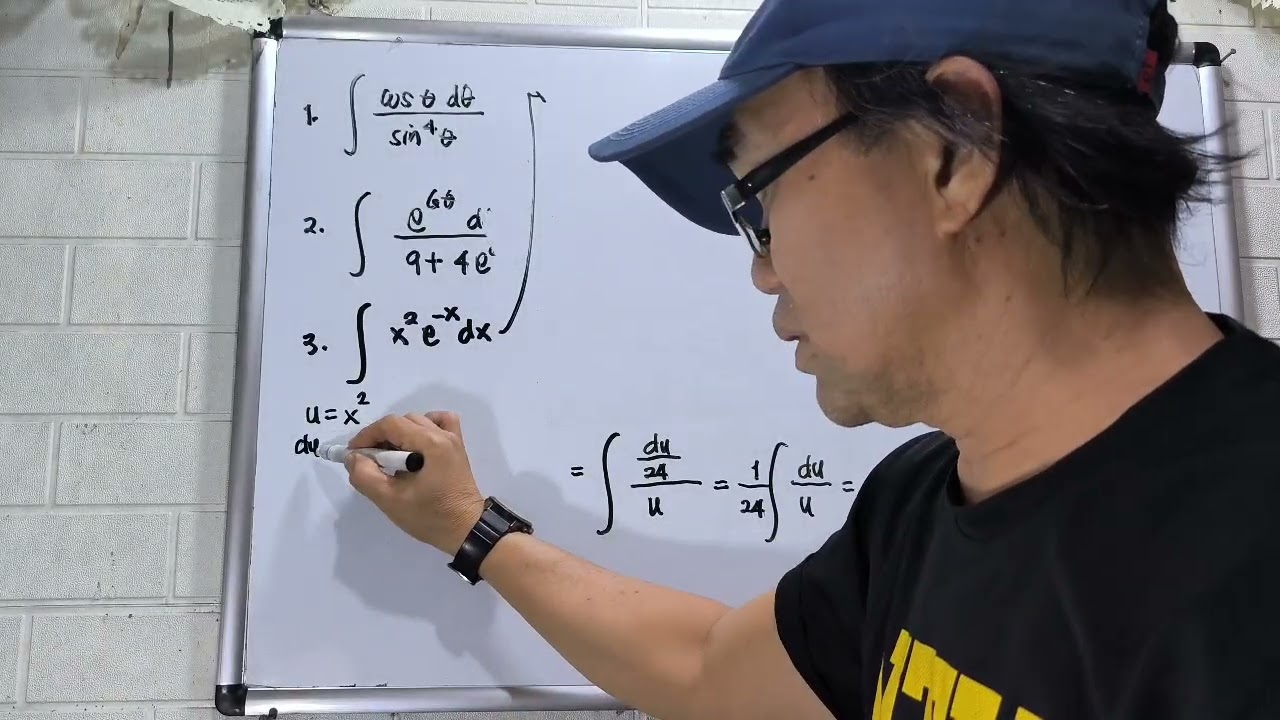 1. ∫ cos θ dθ / sin⁴ θ
2. ∫ e^{6θ} d / 9 + 4e
3. ∫ x² e^{-x} dx
u = x²
du
= ∫ (du/24) / u = 1/24 ∫ du/u =